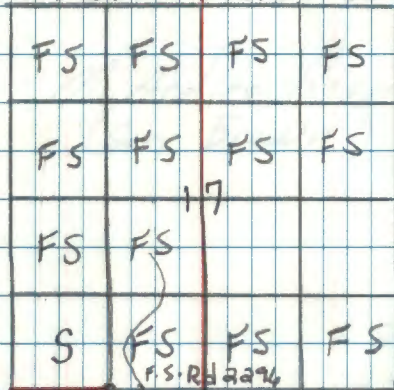 FS FS FS FS
FS FS FS FS
17
FS FS
S FS FS FS
F.S. Rd 2294